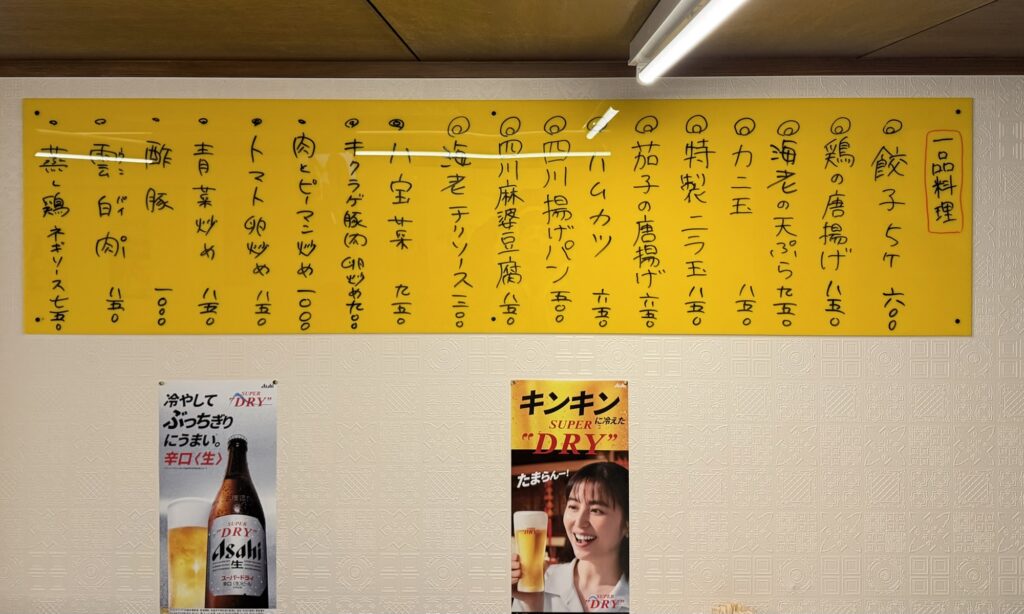 一品料理
◎餃子5ケ 六〇〇
◎鶏の唐揚げ 八五〇
◎海老の天ぷら 九五〇
◎カニ玉 八五〇
◎特製ニラ玉 八五〇
◎茄子の唐揚げ 六五〇
◎ハムカツ 六五〇
◎四川揚げパン 五〇〇
◎四川麻婆豆腐 八五〇
◎海老チリソース 一三〇〇
◎八宝菜 九五〇
◎キクラゲ豚肉卵炒め 九〇〇
・肉とピーマン炒め 一〇〇〇
・トマト卵炒め 八五〇
・青菜炒め 八五〇
・酢豚 一〇〇〇
・雲白肉 八五〇
・蒸し鶏ネギソース 七五〇
Asahi
冷やして
ぶっちぎり
にうまい。
辛口〈生〉
SUPER
"DRY"
SUPER
"DRY"
Asahi
生
スーパードライ
Asahi
キンキン
に冷えた
SUPER
"DRY"
たまらんー!
SUPER
"DRY"